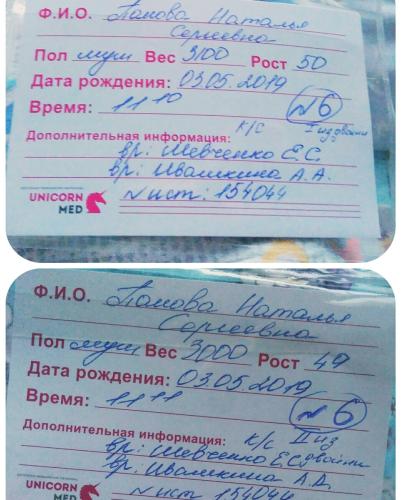 Ф.И.О. Панова Наталья
Сергеевна
Пол муж Вес 3100 Рост 50
Дата рождения: 03.05.2019
Время: 11 10 N6
Дополнительная информация: К/С I из двойни
вр: Шевченко Е.С.
вр: Ивашкина А.А.
UNICORN MED N ист: 154044
Ф.И.О. Панова Наталья
Сергеевна
Пол муж Вес 3000 Рост 49
Дата рождения: 03.05.2019
Время: 11 11 N6
Дополнительная информация: К/С II из
вр: Шевченко Е.С двойни
вр: Ивашкина А.А.
UNICORN N ист 154044